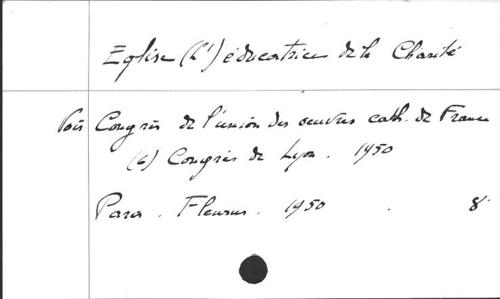 Eglise (L') éducatrice de la Charité
Voir Congrès de l'union des oeuvres cath. de France
(6) Congrès de Lyon. 1950
Paris. Fleurus. 1950. 8°